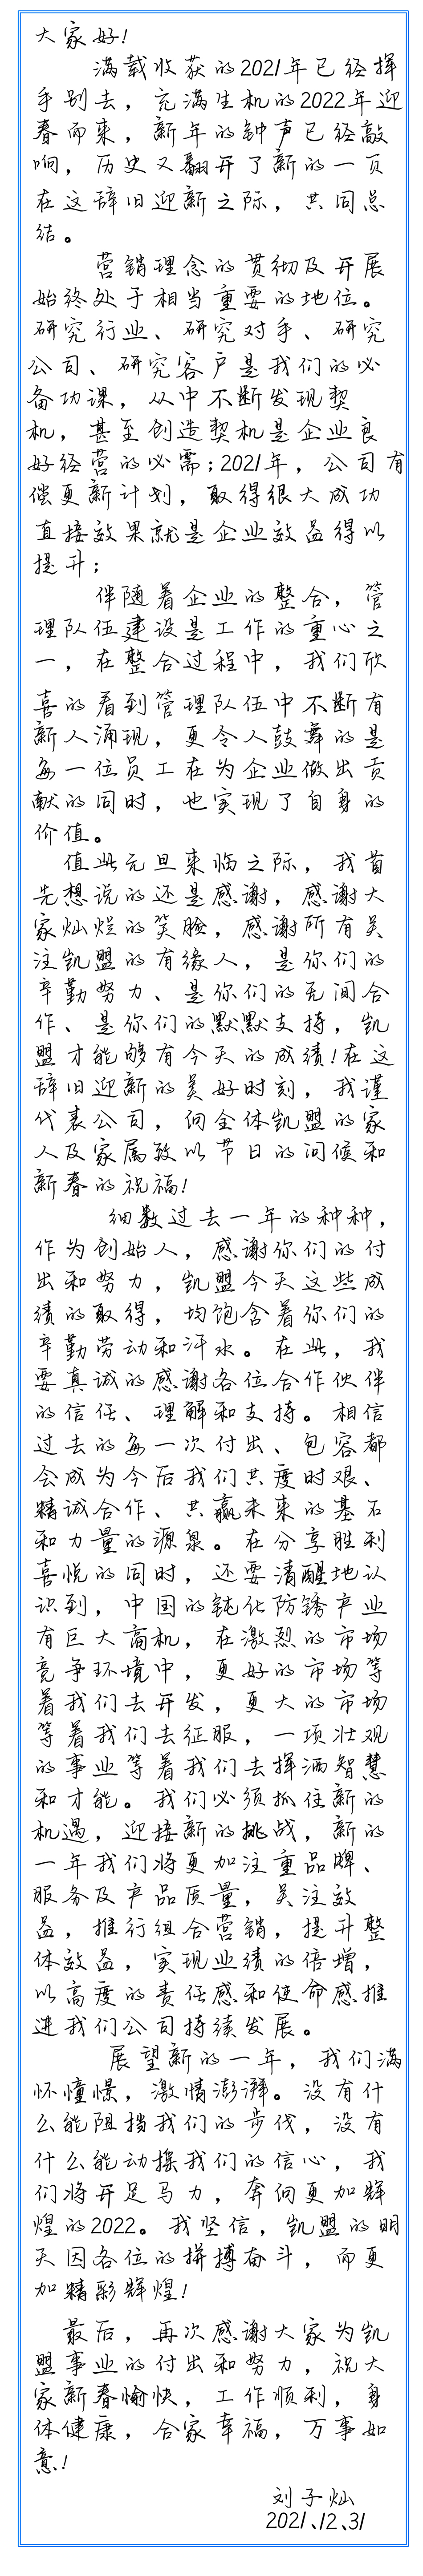 大家好!
满载收获的2021年已经挥
手别去，充满生机的2022年迎
春而来，新年的钟声已经敲
响，历史又翻开了新的一页
在这辞旧迎新之际，共同总
结。
营销理念的贯彻及开展
始终处于相当重要的地位。
研究行业、研究对手、研究
公司、研究客户是我们的必
备功课，从中不断发现契
机，甚至创造契机是企业良
好经营的必需;2021年，公司有
偿更新计划，取得很大成功
直接效果就是企业效益得以
提升;
伴随着企业的整合，管
理队伍建设是工作的重心之
一，在整合过程中，我们欣
喜的看到管理队伍中不断有
新人涌现，更令人鼓舞的是
每一位员工在为企业做出贡
献的同时，也实现了自身的
价值。
值此元旦来临之际，我首
先想说的还是感谢，感谢大
家灿烂的笑脸，感谢所有关
注凯盟的有缘人，是你们的
辛勤努力、是你们的无间合
作、是你们的默默支持，凯
盟才能够有今天的成绩!在这
辞旧迎新的美好时刻，我谨
代表公司，向全体凯盟的家
人及家属致以节日的问候和
新春的祝福!
细数过去一年的种种，
作为创始人，感谢你们的付
出和努力，凯盟今天这些成
绩的取得，均饱含着你们的
辛勤劳动和汗水。在此，我
要真诚的感谢各位合作伙伴
的信任、理解和支持。相信
过去的每一次付出、包容都
会成为今后我们共度时艰、
精诚合作、共赢未来的基石
和力量的源泉。在分享胜利
喜悦的同时，还要清醒地认
识到，中国的钝化防锈产业
有巨大商机，在激烈的市场
竞争环境中，更好的市场等
着我们去开发，更大的市场
等着我们去征服，一项壮观
的事业等着我们去挥洒智慧
和才能。我们必须抓住新的
机遇，迎接新的挑战，新的
一年我们将更加注重品牌、
服务及产品质量，关注效
益，推行组合营销，提升整
体效益，实现业绩的倍增，
以高度的责任感和使命感推
进我们公司持续发展。
展望新的一年，我们满
怀憧憬，激情澎湃。没有什
么能阻挡我们的步伐，没有
什么能动摇我们的信心，我
们将开足马力，奔向更加辉
煌的2022。我坚信，凯盟的明
天因各位的拼搏奋斗，而更
加精彩辉煌!
最后，再次感谢大家为凯
盟事业的付出和努力，祝大
家新春愉快，工作顺利，身
体健康，合家幸福，万事如
意!
刘子灿
2021、12、31